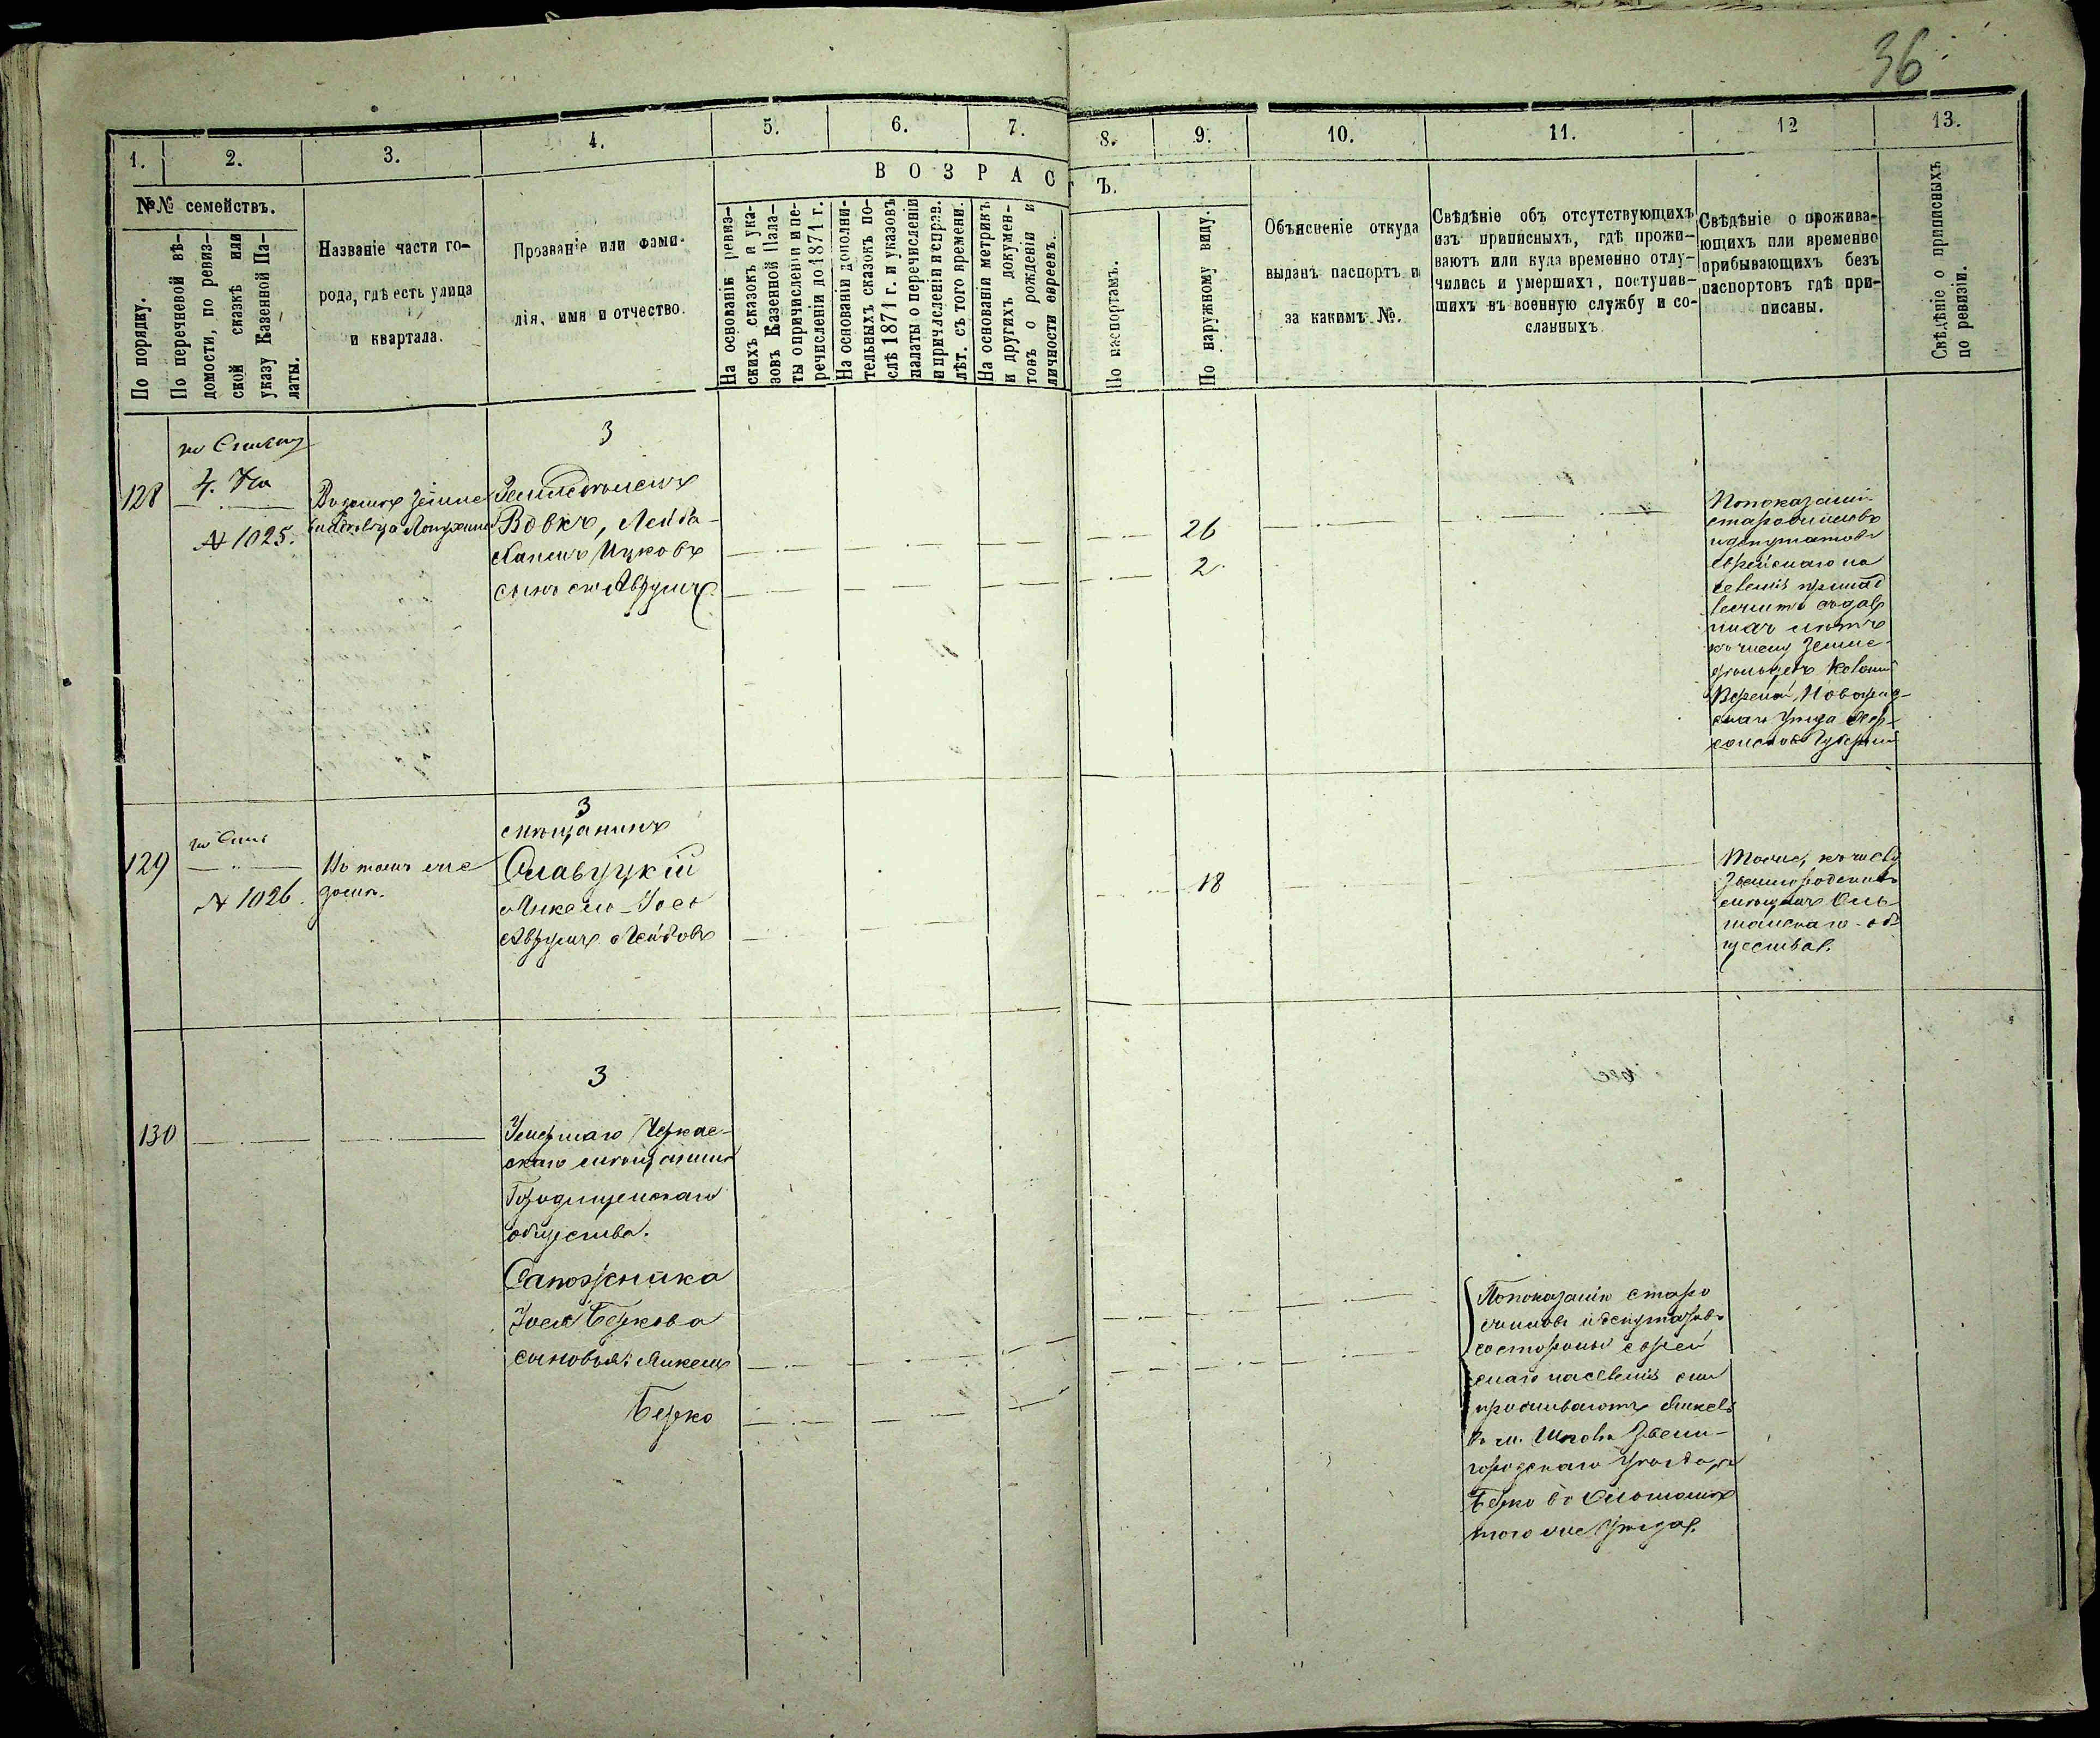 36
1.
2.
3.
4.
5.
6.
7.
8.
9.
10.
11.
12
13.
№№ семействъ.
По порядку.
По перечневой вѣ-
домости, по ревиз-
ской сказкѣ или
указу Казенной Па-
латы.
Названіе части го-
рода, гдѣ есть улица
и квартала.
Прозваніе или фами-
лія, имя и отчество.
ВОЗРАСТЪ.
На основаніи ревиз-
скихъ сказокъ и ука-
зовъ Казенной Пала-
ты о причисленіи и пе-
речисленіи до 1871 г.
На основаніи дополни-
тельныхъ сказокъ по-
слѣ 1871 г. и указовъ
палаты о перечисленіи
и причисленіи исправ.
лѣт. съ того времени.
На основаніи метрикъ
и другихъ докумен-
товъ о рожденіи и
личности евреевъ.
По паспортамъ.
По наружному виду.
Объясненіе откуда
выданъ паспортъ и
за какимъ №.
Свѣдѣніе объ отсутствующихъ
изъ приписныхъ, гдѣ прожи-
ваютъ или куда временно отлу-
чились и умершихъ, поступив-
шихъ въ военную службу и со-
сланныхъ
Свѣдѣніе о прожива-
ющихъ или временно
прибывающихъ безъ
паспортовъ гдѣ при-
писаны.
Свѣдѣніе о приписныхъ
по ревизіи.
по Списку
128
№ 1025.
3
Вовкъ, Лейба-
Хаимъ Ицковъ
сынъ его Аврумъ
26
2.
По показанію
старожиловъ
и депутатовъ
Еврейскаго на
Херсонской Губерніи
129
№ 1026.
Въ томъ же
домѣ.
3
мѣщанинъ
Славуцкій
Янкель-Іось
Аврумъ Лейбовъ
18
Тоже, къ числу
Звенигородскихъ
мѣщанъ Оль
шанскаго об
щества.
130
3
Умершаго Черкас-
скаго мѣщанина
Городищенскаго
общества.
Сапожника
Іося Беркова
сыновья: Янкель
Берко
По показанію старо
жиловъ и депутатовъ
со стороны еврей
скаго населенія они
проживаютъ Янкель
въ м. Шполѣ Звени-
городскаго уѣзда, а
Берко въ Ольшаной
того же уѣзда.